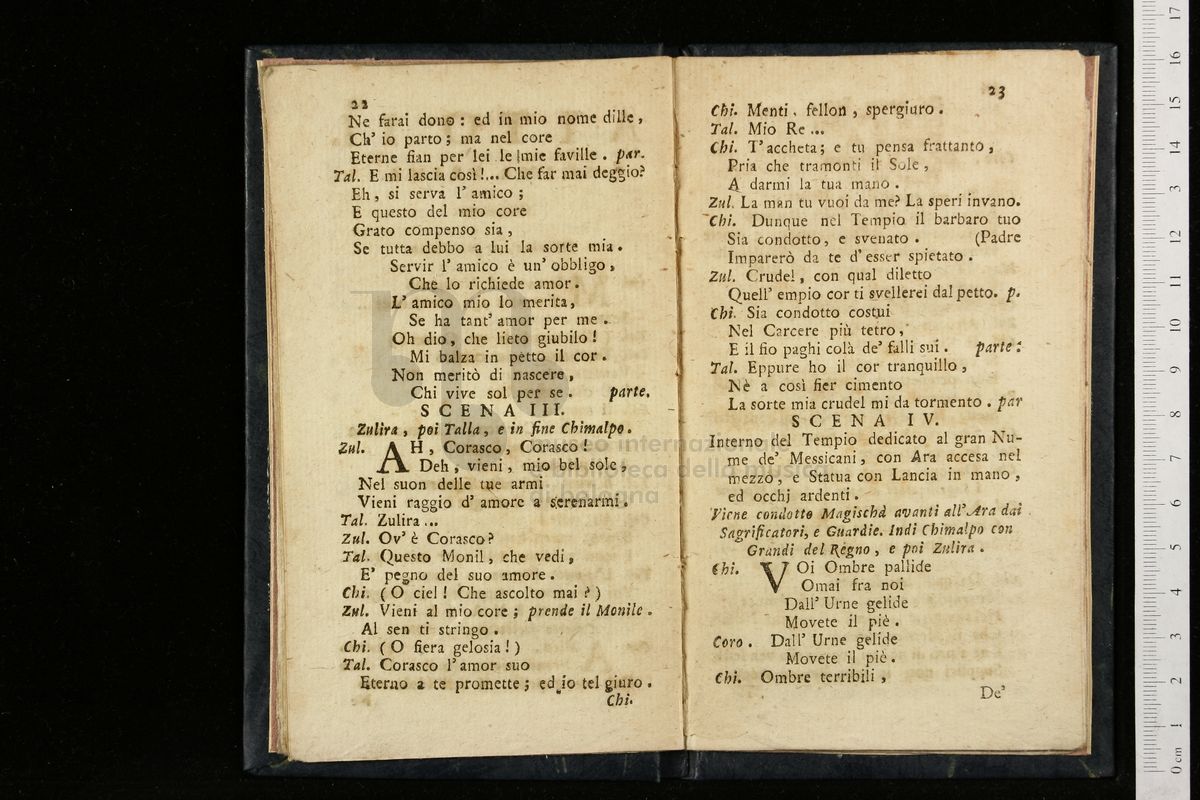 22
Ne farai dono: ed in mio nome dille,
Ch' io parto; ma nel core
Eterne fian per lei le mie faville. par.
Tal. E mi lascia così!... Che far mai deggio?
Eh, si serva l' amico;
E questo del mio core
Grato compenso sia,
Se tutta debbo a lui la sorte mia.
Servir l' amico è un' obbligo,
Che lo richiede amor.
L' amico mio lo merita,
Se ha tant' amor per me.
Oh dio, che lieto giubilo!
Mi balza in petto il cor.
Non meritò di nascere,
Chi vive sol per se. parte.
SCENA III.
Zulira, poi Talla, e in fine Chimalpo.
Zul. AH, Corasco, Corasco!
Deh, vieni, mio bel sole,
Nel suon delle tue armi
Vieni raggio d' amore a serenarmi.
Tal. Zulira...
Zul. Ov' è Corasco?
Tal. Questo Monil, che vedi,
E' pegno del suo amore.
Chi. (O ciel! Che ascolto mai?)
Zul. Vieni al mio core; prende il Monile.
Al sen ti stringo.
Chi. (O fiera gelosia!)
Tal. Corasco l' amor suo
Eterno a te promette; ed io tel giuro.
Chi.
23
Chi. Menti, fellon, spergiuro.
Tal. Mio Re...
Chi. T' accheta; e tu pensa frattanto,
Pria che tramonti il Sole,
A darmi la tua mano.
Zul. La man tu vuoi da me? La speri invano.
Chi. Dunque nel Tempio il barbaro tuo
Sia condotto, e svenato. (Padre
Imparerò da te d' esser spietato.
Zul. Crudel, con qual diletto
Quell' empio cor ti svellerei dal petto. p.
Chi. Sia condotto costui
Nel Carcere più tetro,
E il fio paghi colà de' falli sui. parte:
Tal. Eppure ho il cor tranquillo,
Nè a così fier cimento
La sorte mia crudel mi da tormento. par
SCENA IV.
Interno del Tempio dedicato al gran Nu-
me de' Messicani, con Ara accesa nel
mezzo, e Statua con Lancia in mano,
ed occhj ardenti.
Viene condotto Magischà avanti all' Ara dai
Sagrificatori, e Guardie. Indi Chimalpo con
Grandi del Regno, e poi Zulira.
Chi. VOi Ombre pallide
Omai fra noi
Dall' Urne gelide
Movete il piè.
Coro. Dall' Urne gelide
Movete il piè.
Chi. Ombre terribili,
De'
museo internazionale
biblioteca della musica
di bologna
0 cm 1 2 3 4 5 6 7 8 9 10 11 12 13 14 15 16 17